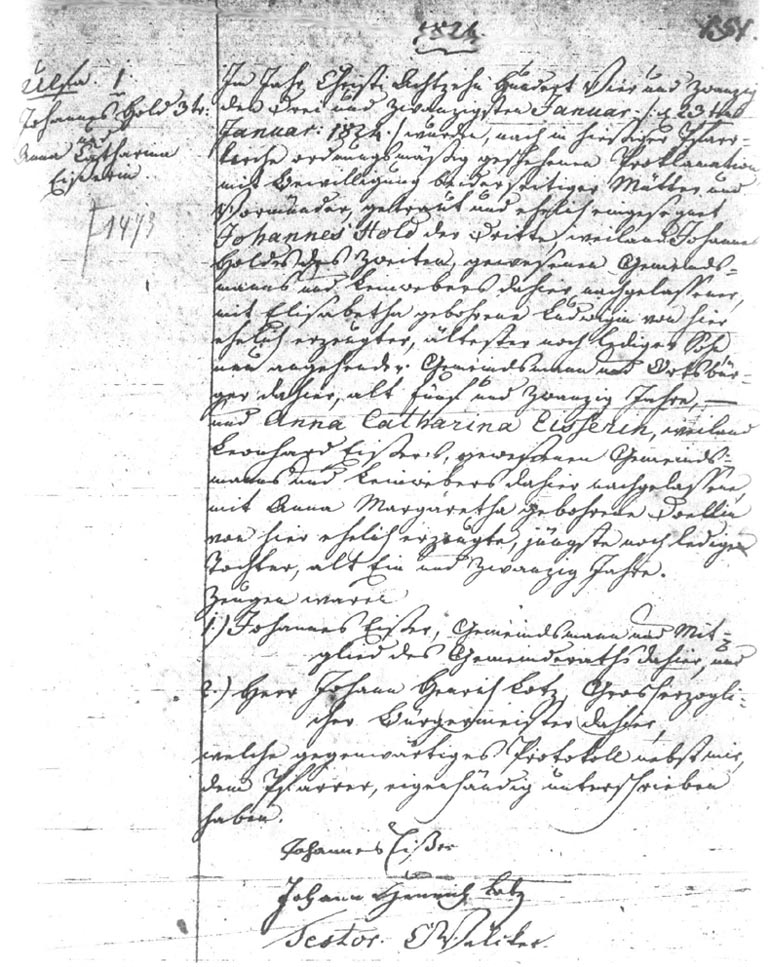 1824.
Ulfa. 1.
Johannes Hold 3tr.
und
Anna Catharina
Eißerin
1473
Im Jahr Christi Achtzehn Hundert Vier und Zwanzig
den Drei und Zwanzigsten Januar /: d. 23ten
Januar: 1824 :/ wurde, nach in hiesiger Pfarr-
kirche ordnungsmäßig geschehener Proklamation
mit Bewilligung beiderseitiger Mütter und
Vormünder, getraut und ehelich eingesegnet
Johannes Hold der Dritte, weiland Johannes
Holdes des Zweiten, gewesenen Gemeinds-
manns und Leinwebers dahier nachgelassener,
mit Elisabetha gebohrene Ludwigin von hier
ehelich erzeugter, ältester noch lediger Sohn
nun angehender Gemeindsmann und Ortsbür-
ger dahier, alt fünf und zwanzig Jahre, —
und Anna Catharina Eisserin, weiland
Leonhard Eißers, gewesenen Gemeinds-
manns und Leinwebers dahier nachgelassene,
mit Anna Margaretha gebohrene
von hier ehelich erzeugte, jüngste noch ledige
Tochter, alt Ein und Zwanzig Jahre.
Zeugen waren
1.) Johannes Eißer, Gemeindsmann und Mit-
glied des Gemeinderaths dahier, und
2.) Herr Johann Henrich Lotz, Grosherzogli-
cher Bürgermeister dahier,
welche gegenwärtiges Protokoll nebst mir,
dem Pfarrer, eigenhändig unterschrieben
haben.
Johannes Eißer
Johann Henrich Lotz